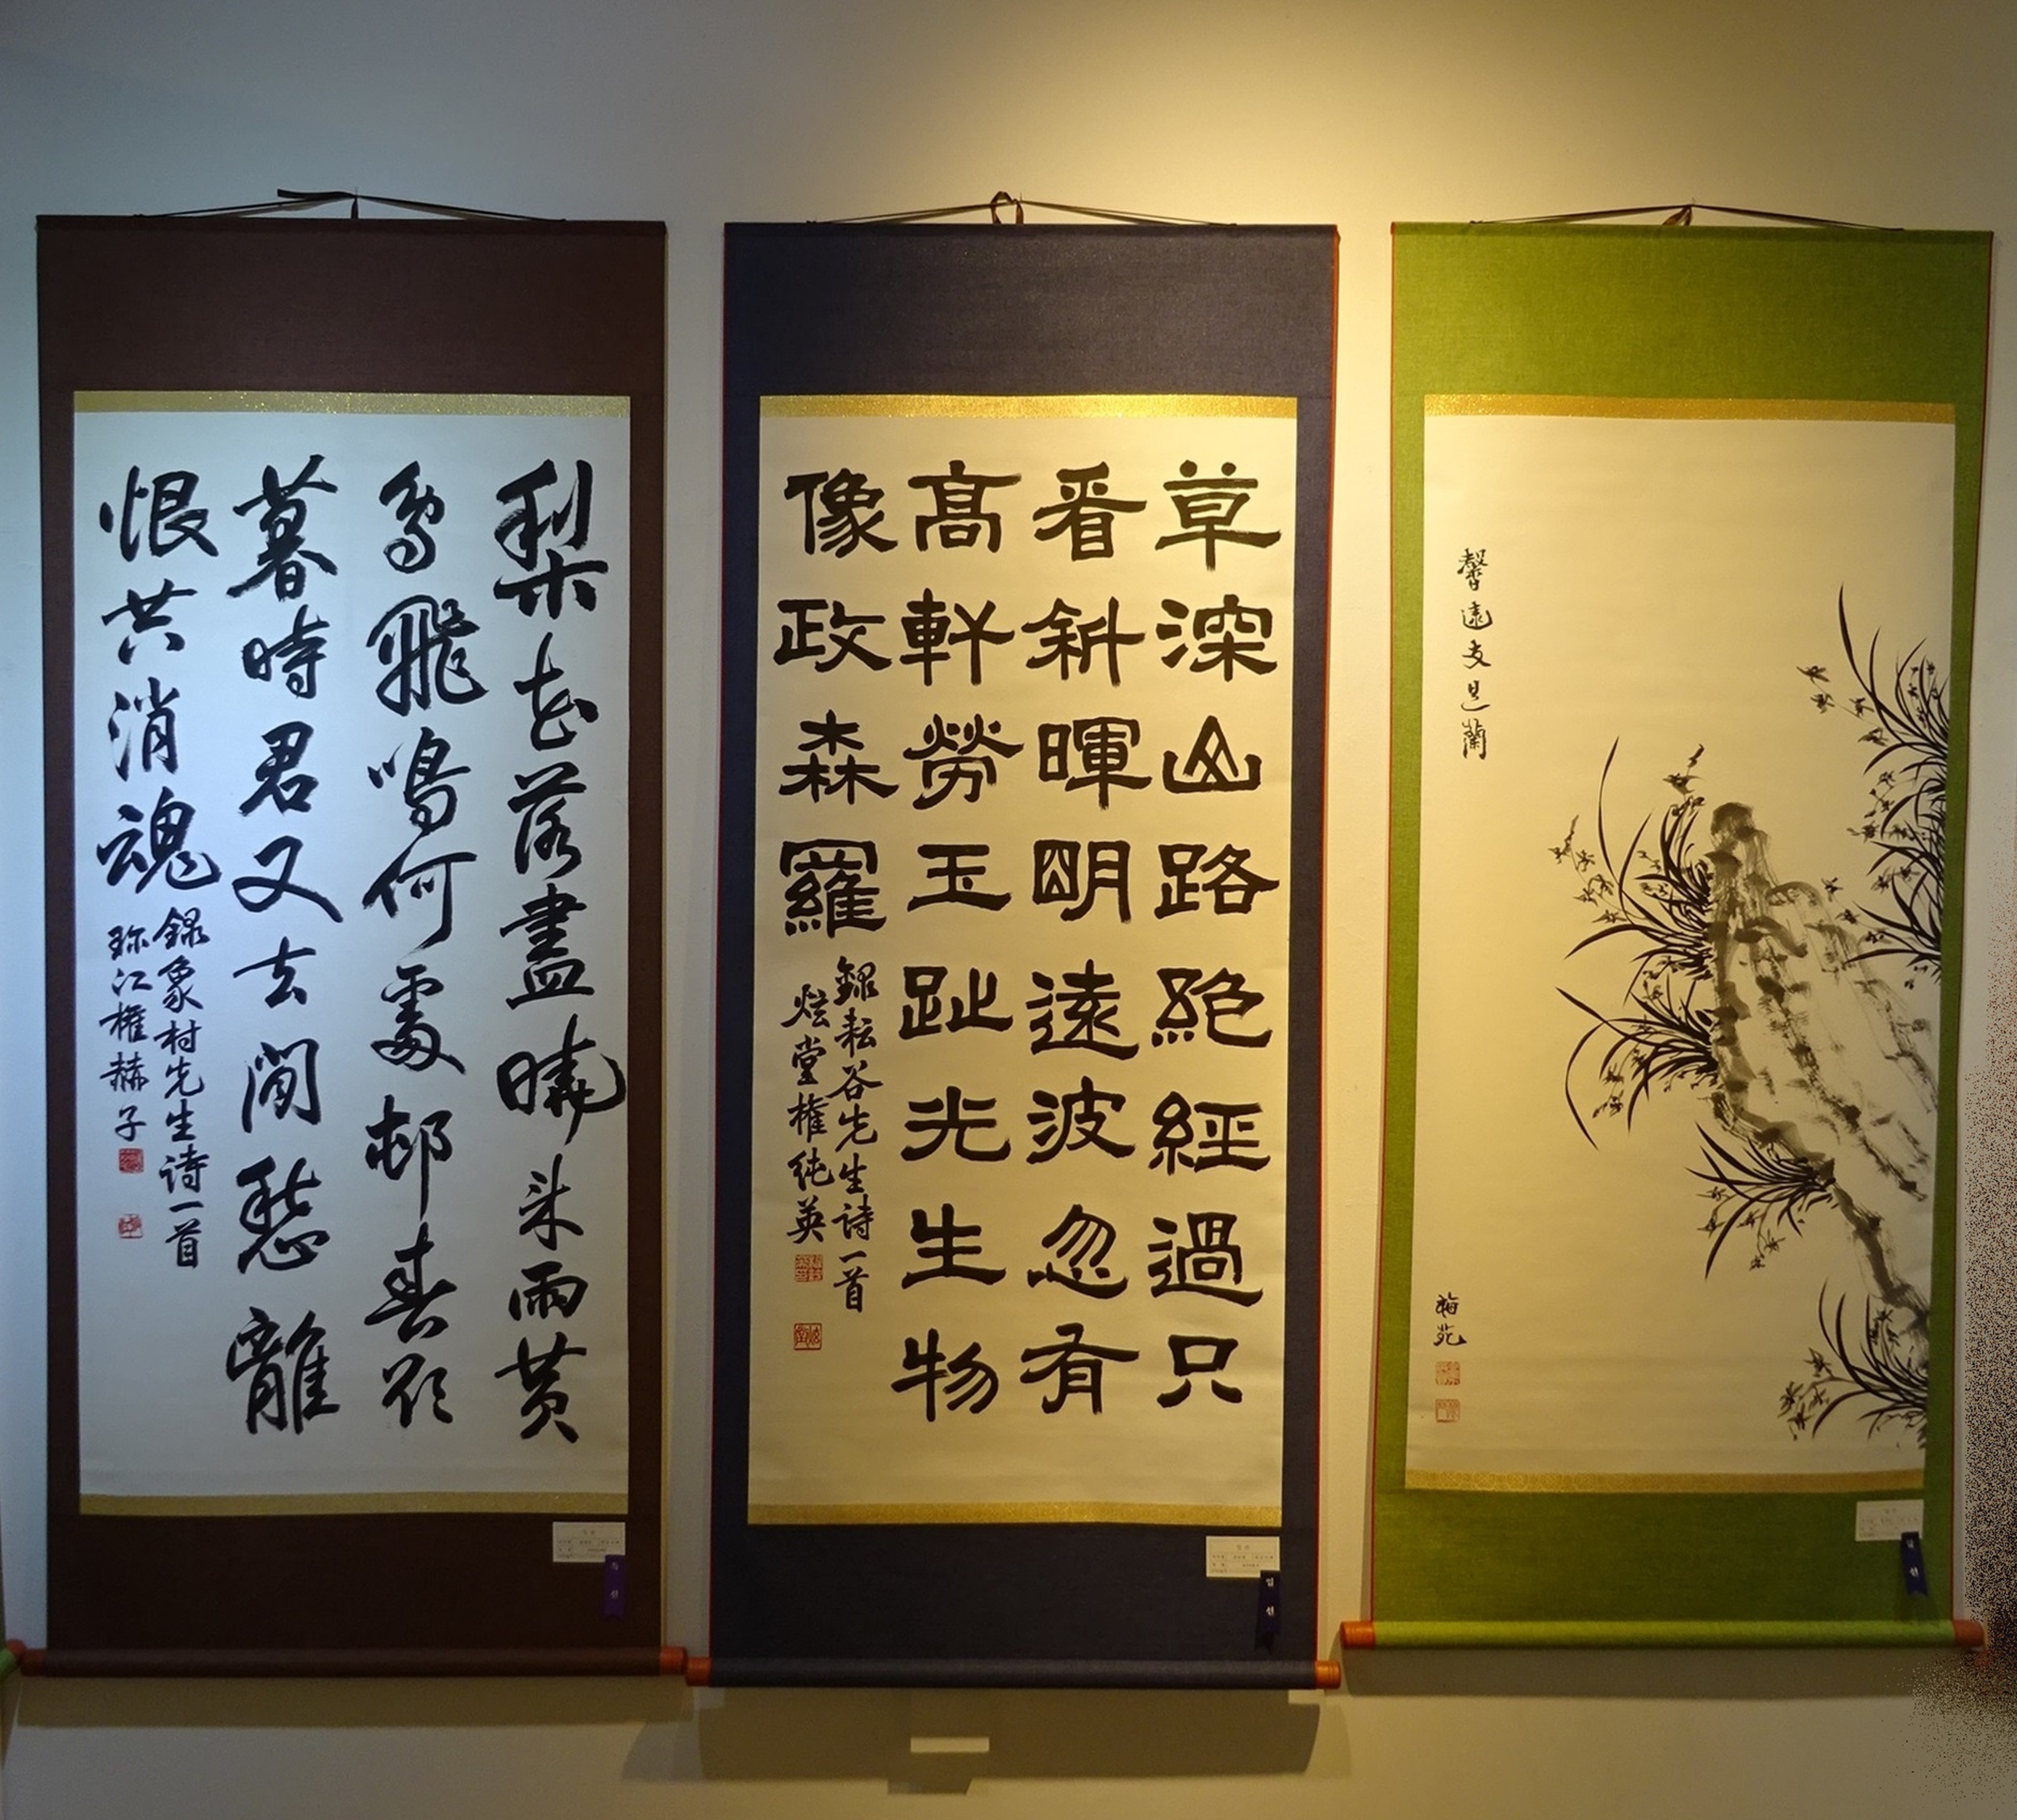 梨花落盡曉來雨黃
鳥飛鳴何處邨春欲
暮時君又去閒愁離
恨共消魂
錄象村先生詩一首
珎江權赫子
草深山路絕經過只
看斜暉明遠波忽有
高軒勞玉趾光生物
像政森羅
錄耘谷先生詩一首
炫堂權純英
馨遠 是蘭
梅苑
입선
입선